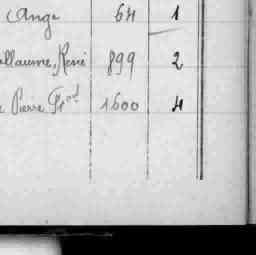 Ange 64 1
illaume, René 899 2
Pierre Frnd 1600 4